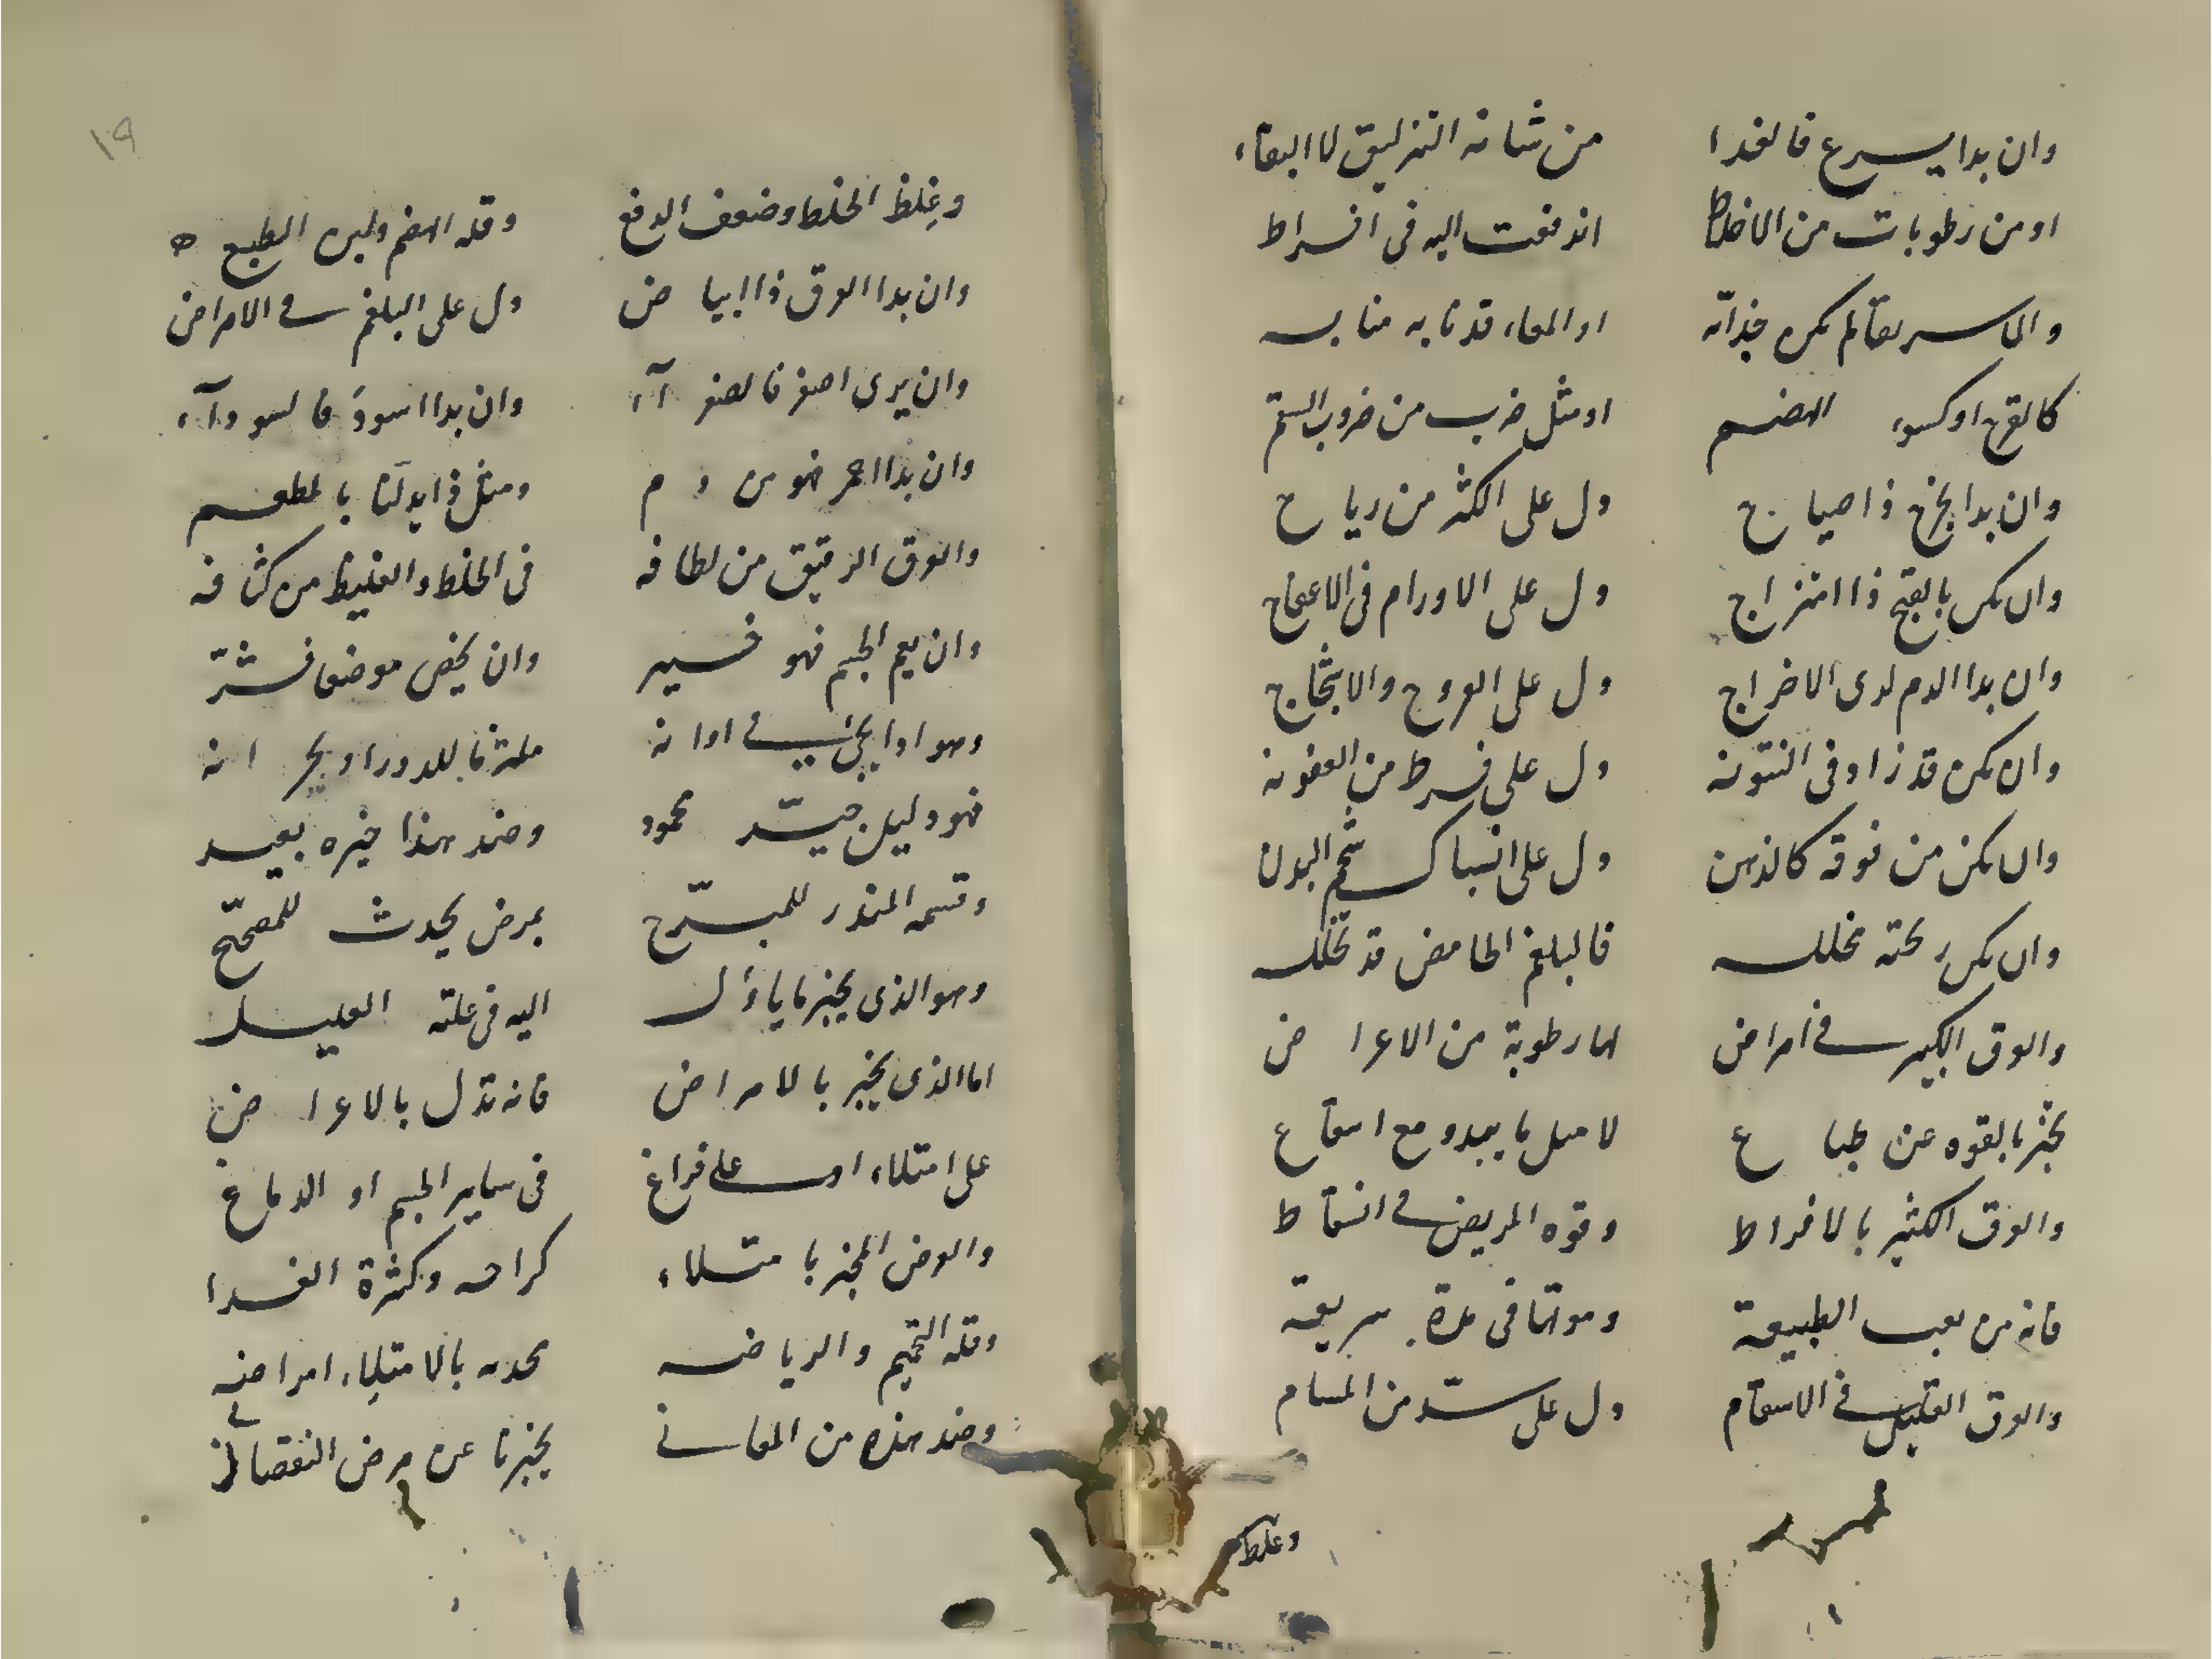 وان بدا يسرع فالغدا من شانه التزليق لا البقاء
او من رطوبات من الاخلاط اندفعت اليه فى افراط
والماسريقا لم يكن جذابه او المعاء قد نابه منا به
كالقرح او كسوء الهضم او مثل ضرب من ضروب السقم
وان بدا يخرج ذا صياح دل على الكثر من رياح
وان يكن بالقيح ذا امتزاج دل على الاورام فى الاعفاج
وان بدا الدم لدى الاخراج دل على القروح والاسحاج
وان يكن قد زاد فى النتونه دل على فرط من العفونه
وان يكن من فوقه كالدهن دل على انسباك شحم البدن
وان يكن ريحته تخلله فالبلغم الحامض قد تخلله
والعرق الكثير فى امراض لها رطوبة من الاعراض
يخبر بالقوه عن طباع لا سيل ما يبدو مع اسقاع
والعرق الكثير بالافراط وقوه المريض فى انسقاط
فانه من تعب الطبيعة وموتها فى مدة سريعة
والعرق القليل فى الاسقام دل على سدّ من المسام
وغلظ
١٩
وغلظ الخلط وضعف الدفع وقله الهضم ولين الطبع ه
وان بدا العرق ذا ابياض دل على البلغم فى الامراض
وان يرى اصفر فالصفرآء وان بدا اسود فالسودآء
وان بدا احمر فهو من دم ومثل ذا يدلنا بالمطعم
والعرق الرقيق من لطافه فى الخلط والغليظ من كثافه
وان يعم الجسم فهو خير وان يخص موضعا فشرّ
وهو اذا يجئ فى اوانه ملتزما للدور او بحرانه
فهو دليل جيّد محمود وضد هذا خيره بعيد
وقسمه المنذر للمبرّح بمرض يحدث للمصحّح
وهو الذى يخبر ما يأول اليه فى علته العليل
اما الذى يخبر بالامراض فانه تدل بالاعراض
على امتلاء او على فراغ فى ساير الجسم او الدماغ
والعرض المخبر بامتلاء كراحه وكثرة الغدا
وقله التحميم والرياضه تحدث بالامتلاء امراضه
وضد هذه من المعانى يخبرنا عن مرض النقصان